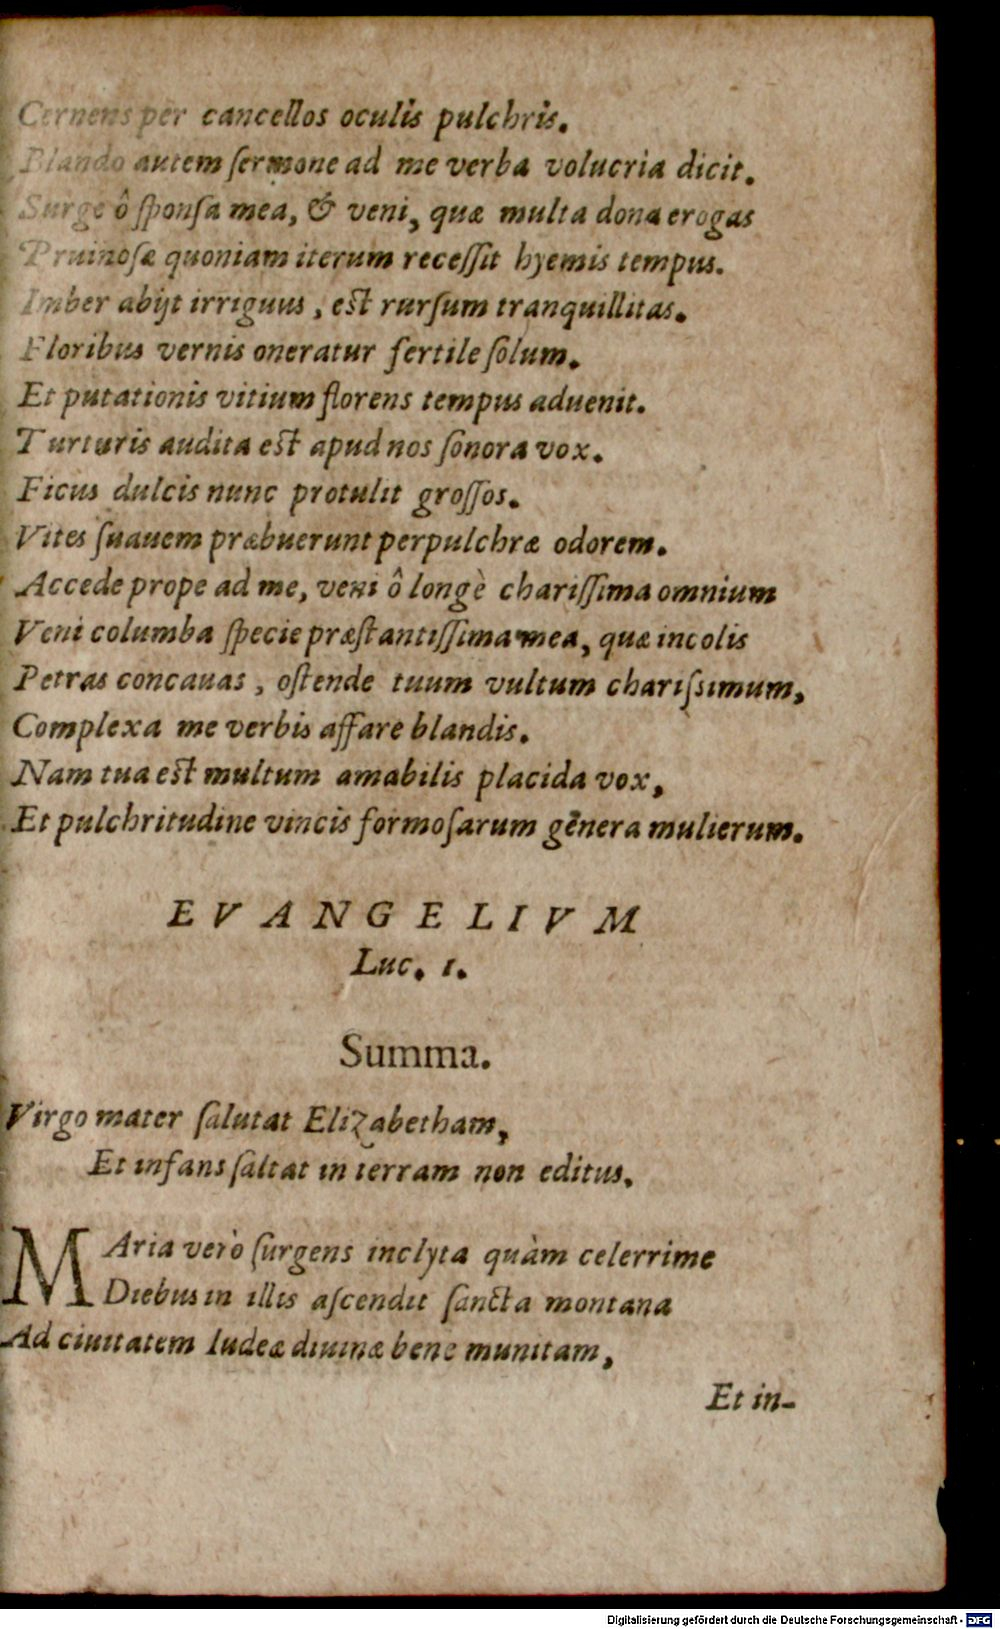 Cernens per cancellos oculis pulchris.
Blando autem ſermone ad me verba volucria dicit.
Surge ô ſponſa mea, & veni, quæ multa dona erogas
Pruinoſæ quoniam iterum receſſit hyemis tempus.
Imber abijt irriguus, eſt rurſum tranquillitas.
Floribus vernis oneratur fertile ſolum.
Et putationis vitium florens tempus aduenit.
Turturis audita eſt apud nos ſonora vox.
Ficus dulcis nunc protulit groſſos.
Vites ſuauem præbuerunt perpulchræ odorem.
Accede prope ad me, veni ô longè chariſſima omnium
Veni columba ſpecie præſtantiſſima mea, quæ incolis
Petras concauas, oſtende tuum vultum chariſsimum,
Complexa me verbis affare blandis.
Nam tua eſt multum amabilis placida vox,
Et pulchritudine vincis formoſarum gēnera mulierum.
EVANGELIVM
Luc. 1.
Summa.
Virgo mater ſalutat Elizabetham,
Et infans ſaltat in terram non editus.
MAria verò ſurgens inclyta quàm celerrime
Diebus in illis aſcendit ſancta montana
Ad ciuitatem Iudeæ diuinæ bene munitam,
Et in-
Digitalisierung gefördert durch die Deutsche Forschungsgemeinschaft - DFG